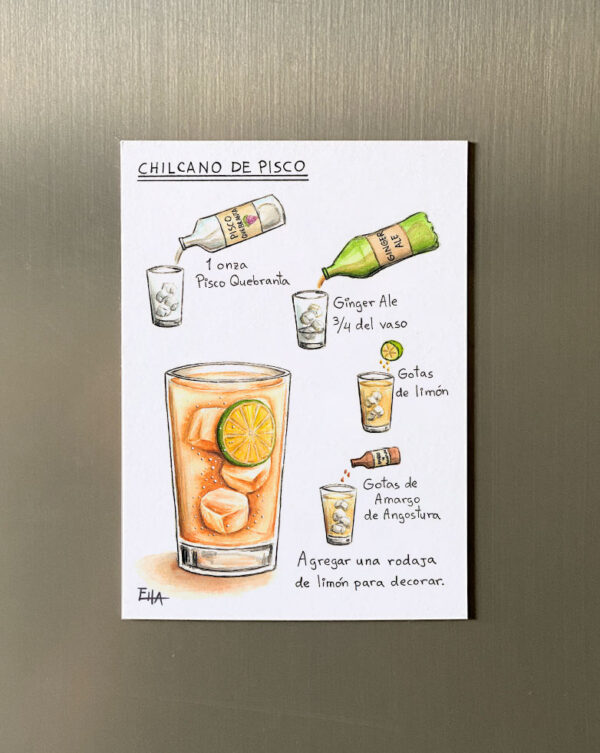 CHILCANO DE PISCO
PISCO
QUEBRANTA
1 onza
Pisco Quebranta
GINGER
ALE
Ginger Ale
3/4 del vaso
Gotas
de limón
Gotas de
Amargo
de Angostura
Agregar una rodaja
de limón para decorar.